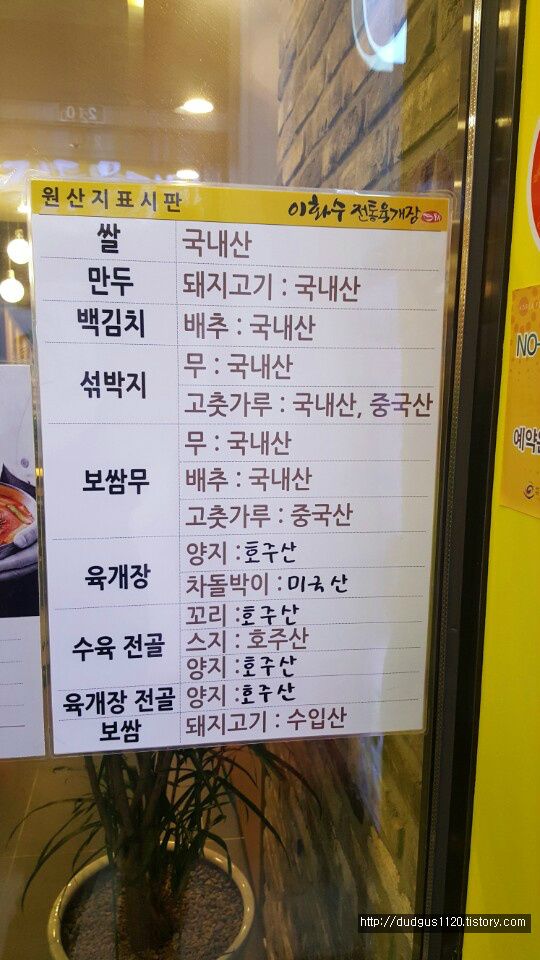 원산지표시판 이화수 전통육개장
쌀 국내산
만두 돼지고기 : 국내산
백김치 배추 : 국내산
섞박지 무 : 국내산
고춧가루 : 국내산, 중국산
보쌈무 무 : 국내산
배추 : 국내산
고춧가루 : 중국산
육개장 양지 : 호주산
차돌박이 : 미국산
수육 전골 꼬리 : 호주산
스지 : 호주산
양지 : 호주산
육개장 전골 양지 : 호주산
보쌈 돼지고기 : 수입산
NO-
예약
http://dudgus1120.tistory.com